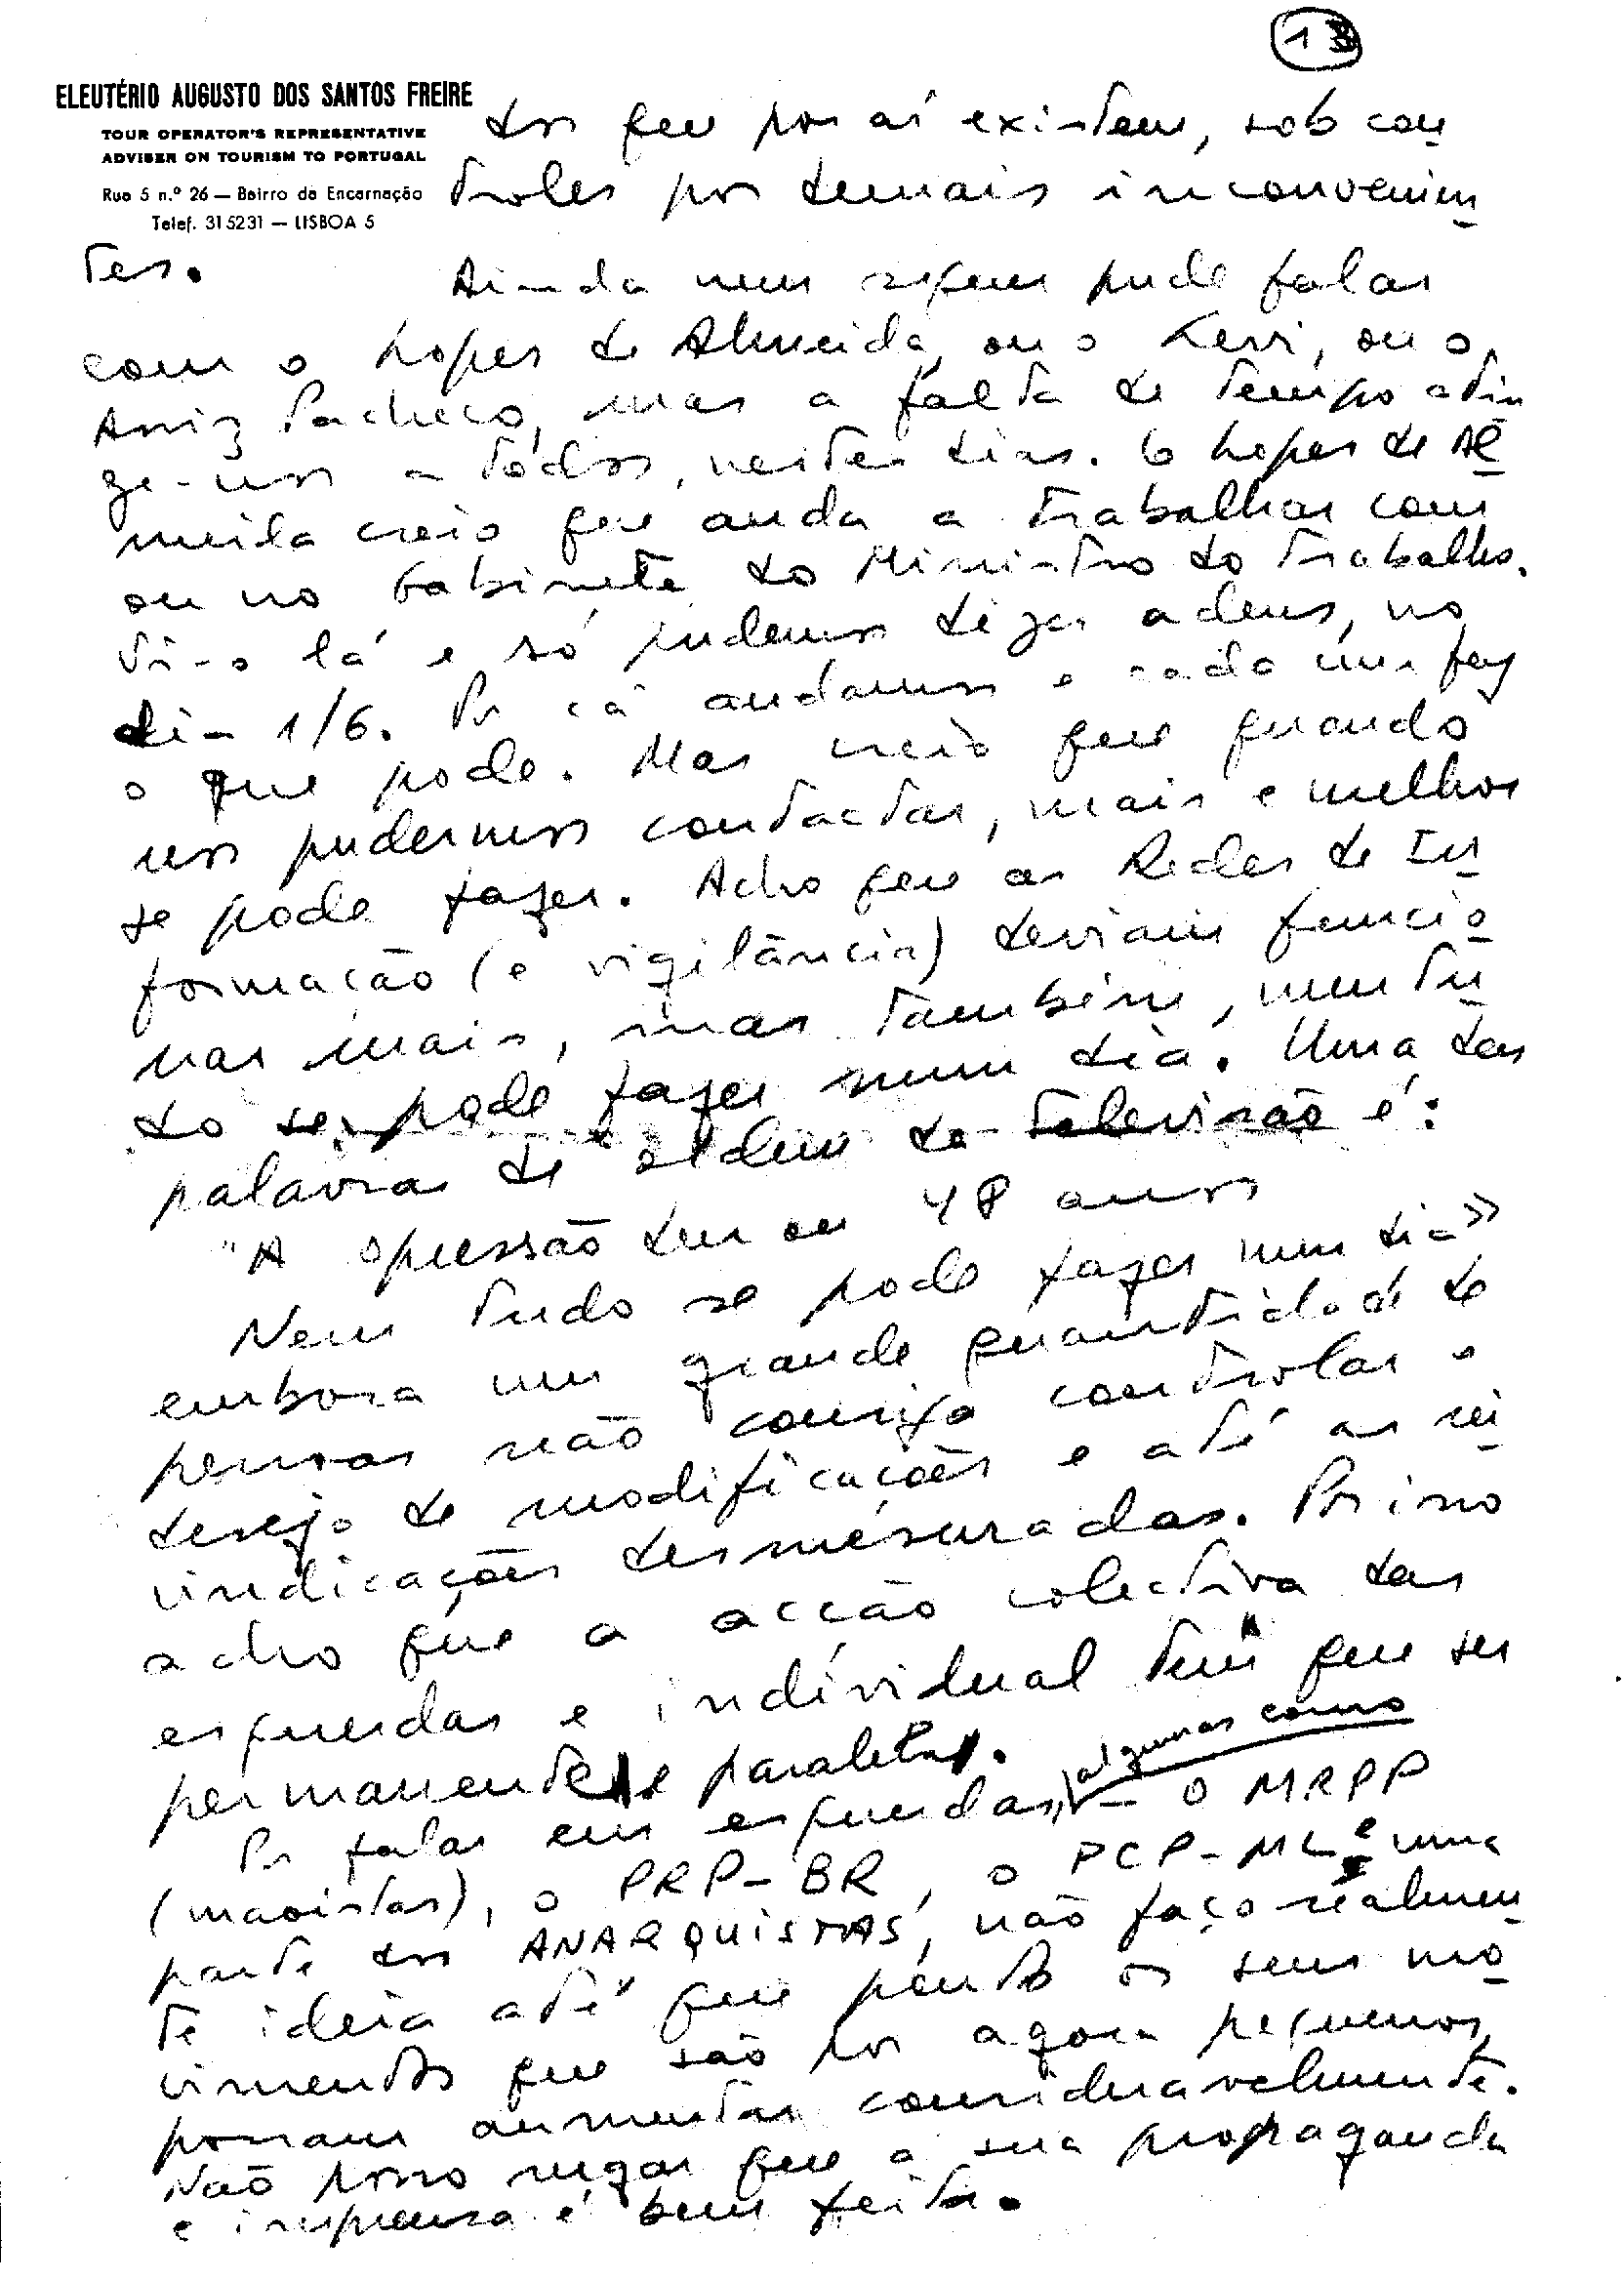 13
ELEUTÉRIO AUGUSTO DOS SANTOS FREIRE
TOUR OPERATOR'S REPRESENTATIVE
ADVISER ON TOURISM TO PORTUGAL
Rua 5 n.º 26 — Bairro da Encarnação
Telef. 315231 — LISBOA 5
dos que por aí existem, sob con
troles por demais inconvenien
tes. Ainda nem sequer pude falar
com o Lopes de Almeida, ou o Levi, ou o
Pacheco, mas a falta de tempo atin
ge-nos a todos, nestes dias. O Lopes de Al
meida creio que anda a trabalhar com
ou no Gabinete do Ministro do Trabalho.
Vi-o lá e só pudemos dizer adeus, no
dia 1/6. Por cá andamos e cada um faz
o que pode. Mas creio que quando
nos pudermos contactar, mais e melhor
se pode fazer. Acho que as Redes de In
formação (e vigilância) deviam funcio
nar mais, mas também, nem tu
do se pode fazer num dia. Uma das
palavras de ordem da televisão é:
"A opressão durou 48 anos
Nem tudo se pode fazer num dia»
embora um grande quantidade de
pessoas não consiga controlar o
desejo de modificações e até as rei
vindicações desmesuradas. Por isso
acho que a acção colectiva das
esquerdas e individual tem que ser
permanente e paralela.
Por falar em esquerdas, algumas como – o MRPP
(maoistas), o PRP-BR, o PCP-ML e uma
parte dos ANARQUISTAS, não faço realmen
te ideia até que ponto os seus mo
vimentos que são por agora pequenos,
possam aumentar consideravelmente.
Não posso negar que a sua propaganda
e imprensa é bem feita.